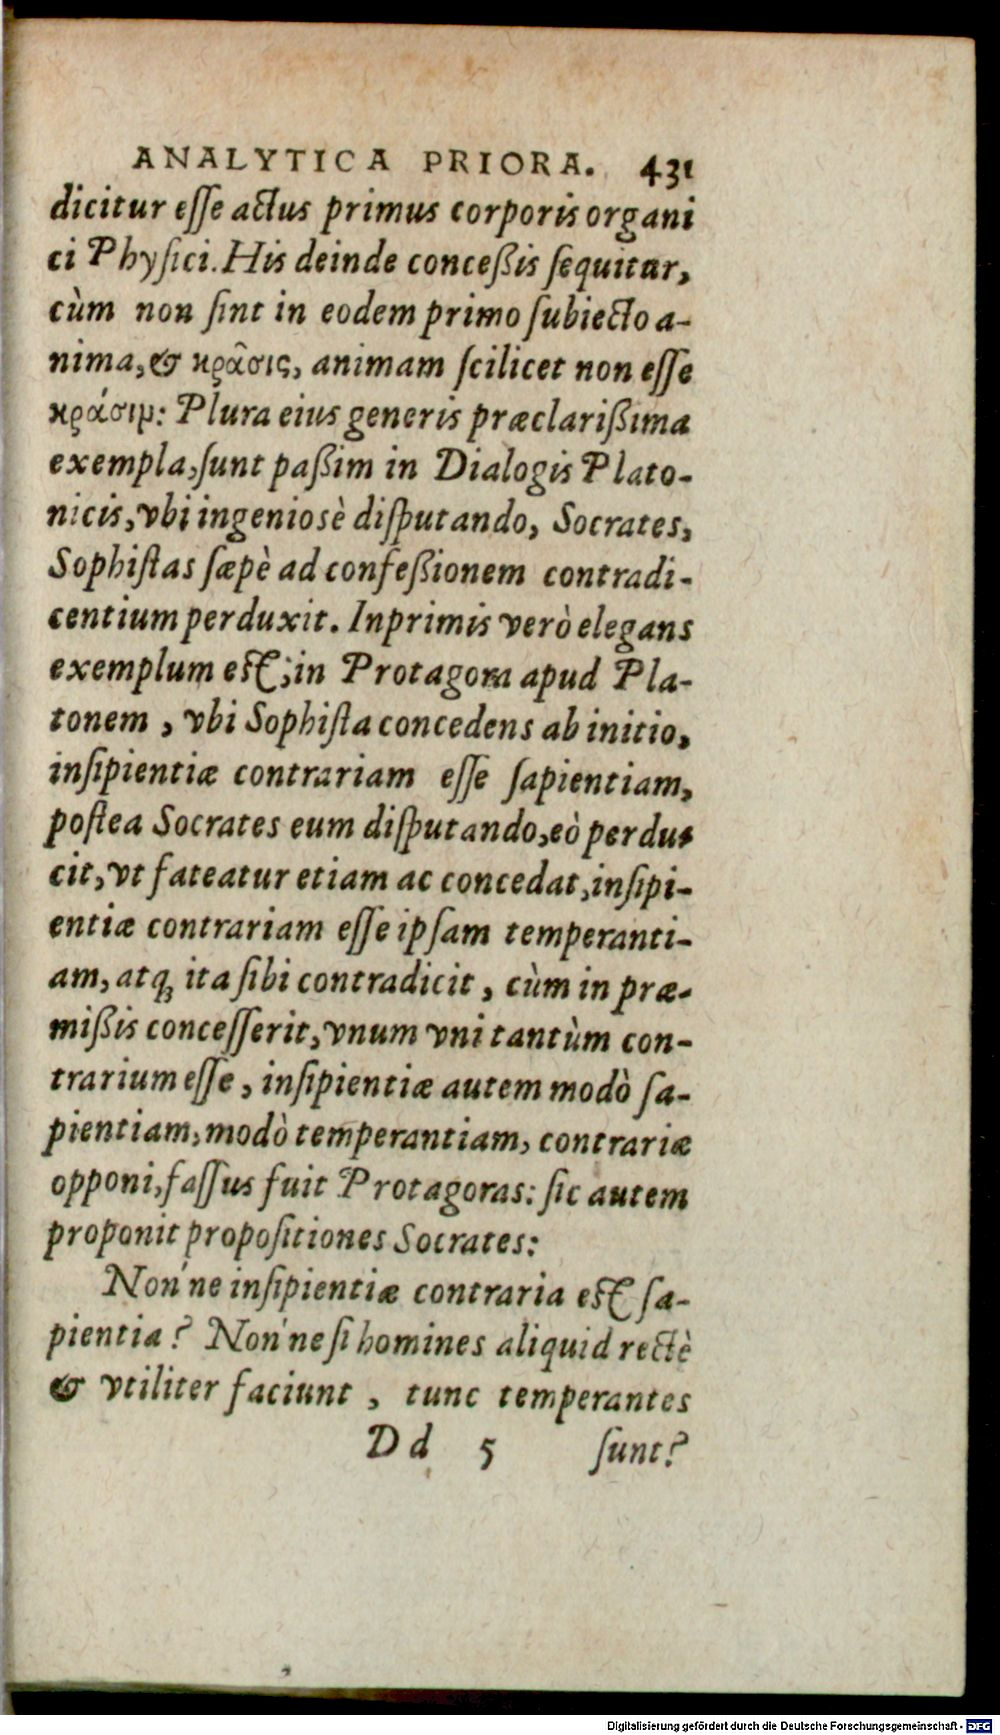 ANALYTICA PRIORA. 431
dicitur esse actus primus corporis organi
ci Physici. His deinde conceßis sequitur,
cùm non sint in eodem primo subiecto a-
nima, & κρᾶσις, animam scilicet non esse
κράσιμ: Plura eius generis præclarißima
exempla, sunt paßim in Dialogis Plato-
nicis, vbi ingeniosè disputando, Socrates,
Sophistas sæpè ad confeßionem contradi-
centium perduxit. Inprimis verò elegans
exemplum est, in Protagora apud Pla-
tonem, vbi Sophista concedens ab initio,
insipientiæ contrariam esse sapientiam,
postea Socrates eum disputando, eò perdu-
cit, vt fateatur etiam ac concedat, insipi-
entiæ contrariam esse ipsam temperanti-
am, atq; ita sibi contradicit, cùm in præ-
mißis concesserit, vnum vni tantùm con-
trarium esse, insipientiæ autem modò sa-
pientiam, modò temperantiam, contrariæ
opponi, fassus fuit Protagoras: sic autem
proponit propositiones Socrates:
Non'ne insipientiæ contraria est sa-
pientia? Non'ne si homines aliquid rectè
& vtiliter faciunt, tunc temperantes
Dd 5 sunt?
Digitalisierung gefördert durch die Deutsche Forschungsgemeinschaft - DFG